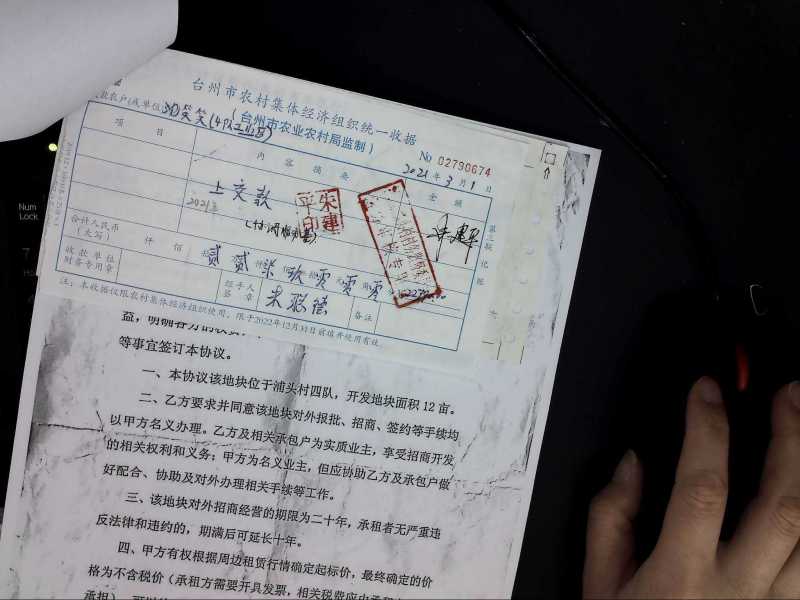 台州市农村集体经济组织统一收据
(台州市农业农村局监制)
No 02790674
2021年3月1日
项目
内容摘要
金额
上交款
2021年
朱建平印
合计人民币
(大写)
仟 佰
贰 贰 柒 玖 零 元 零 零
收款单位
财务专用章
经手人
签章
备注
第三联 记账
注:本收据仅限农村集体经济组织使用,限于2022年12月31日前填开使用有效。
等事宜签订本协议。
一、本协议该地块位于浦头村四队,开发地块面积12亩。
二、乙方要求并同意该地块对外报批、招商、签约等手续均
以甲方名义办理。乙方及相关承包户为实质业主,享受招商开发
的相关权利和义务;甲方为名义业主,但应协助乙方及承包户做
好配合、协助及对外办理相关手续等工作。
三、该地块对外招商经营的期限为二十年,承租者无严重违
反法律和违约的,期满后可延长十年。
四、甲方有权根据周边租赁行情确定起标价,最终确定的价
格为不含税价(承租方需要开具发票,相关税费应由承租
Num
Lock